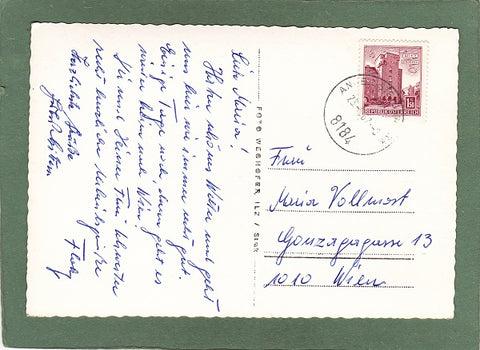 Liebe Maria!
Haben schönes Wetter und geht
uns hier wie immer sehr gut.
Einige Tage noch dann geht es
wieder heim nach Wien.
Dir und Deiner Fam. wünschen
recht herzliche Urlaubsgrüße
Herzliche Grüße
FOTO WEGHOFER ILZ / Stmk
8184
REPUBLIK ÖSTERREICH
Frau
Maria Vollmost
Gonzagagasse 13
1010 Wien